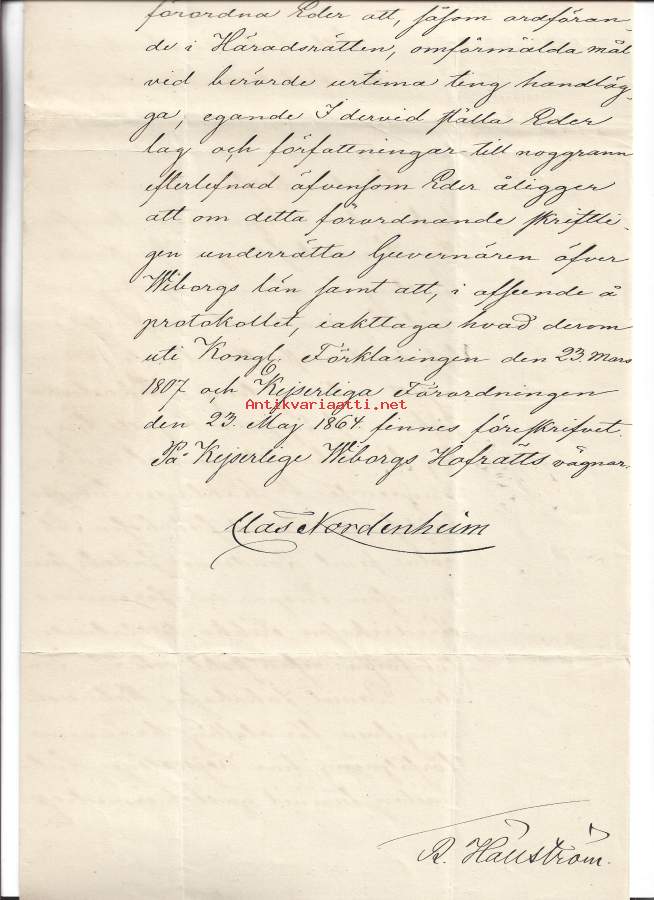 förordna Eder att, såsom ordföran-
de i Häradsrätten, omförmälda mål
vid berörde urtima ting handläg-
ga, egande I dervid ställa Eder
lag och författningar till noggrann
efterlefnad äfvensom Eder åligger
att om detta förordnande skriftli-
gen underrätta Guvernören öfver
Wiborgs län samt att, i afseende å
protokollet, iakttaga hvad derom
uti Kongl. Förklaringen den 23. Mars
1807 och Kejserliga Förordningen
Antikvariaatti.net
den 23. Maj 1864 finnes föreskrifvet.
På Kejserlige Wiborgs Hofrätts vägnar:
Clas Nordenheim
B. Hällström.